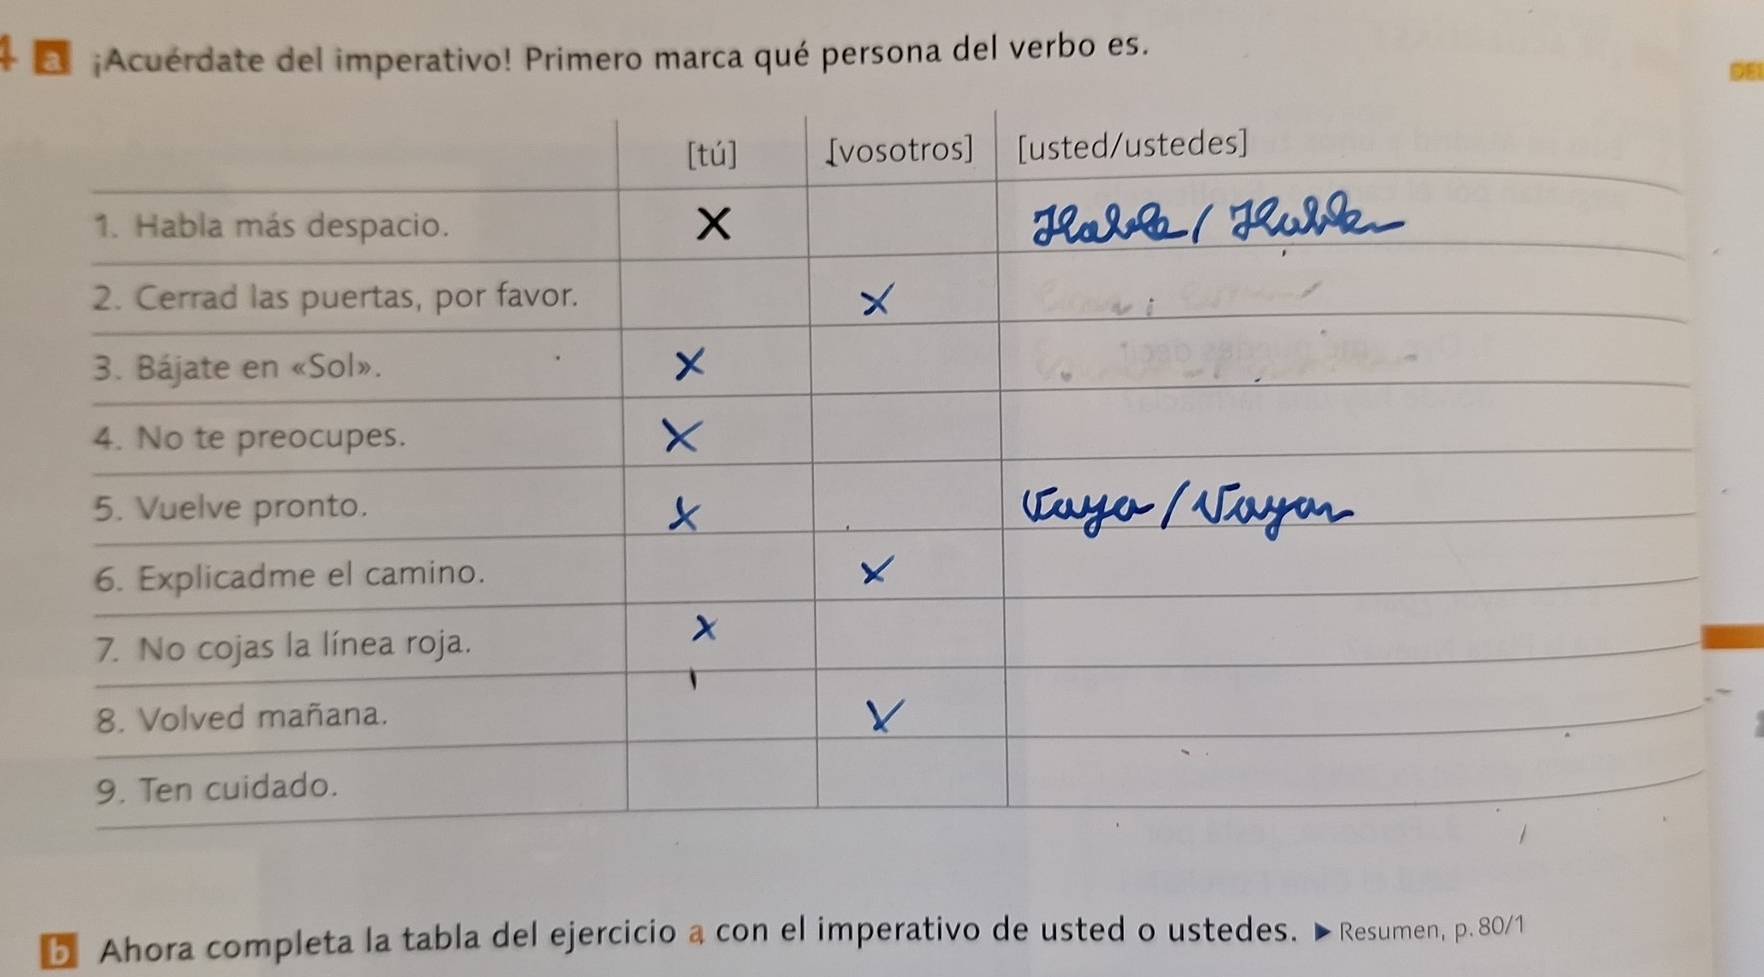 4 a ¡Acuérdate del imperativo! Primero marca qué persona del verbo es.
DEL
[tú] [vosotros] [usted/ustedes]
1. Habla más despacio. X Hable / Hablen
2. Cerrad las puertas, por favor. X
3. Bájate en «Sol». X
4. No te preocupes. X
5. Vuelve pronto. X Vaya / Vayan
6. Explicadme el camino. X
7. No cojas la línea roja. X
8. Volved mañana. X
9. Ten cuidado.
b Ahora completa la tabla del ejercicio a con el imperativo de usted o ustedes. ▶ Resumen, p. 80/1